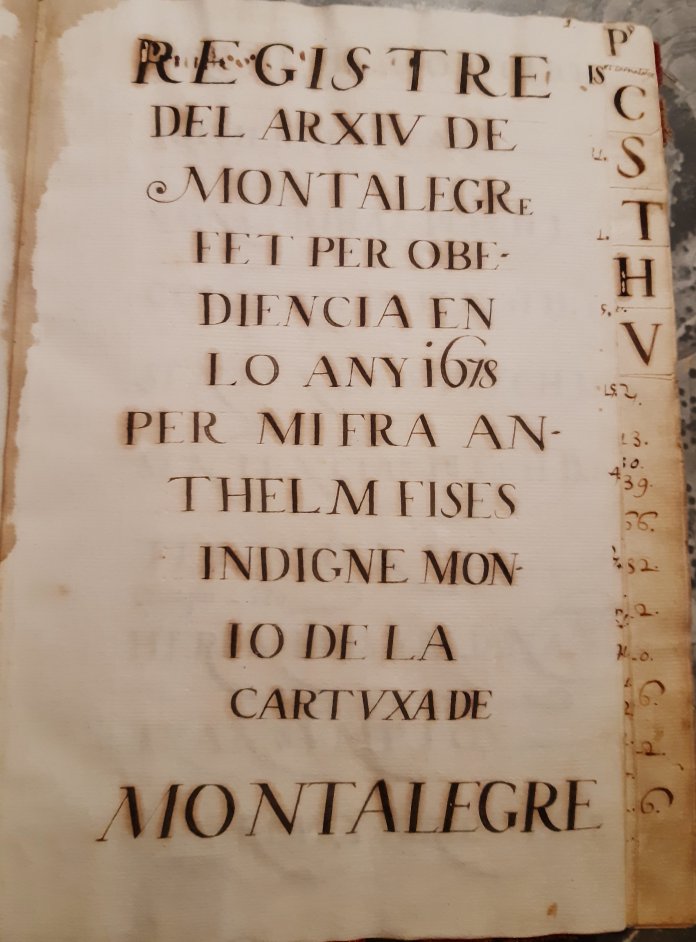 REGISTRE
DEL ARXIV DE
MONTALEGRE
FET PER OBE-
DIENCIA EN
LO ANY 1678
PER MI FRA AN-
THELM FISES
INDIGNE MON-
IO DE LA
CARTVXA DE
MONTALEGRE
P
C
S
T
H
V